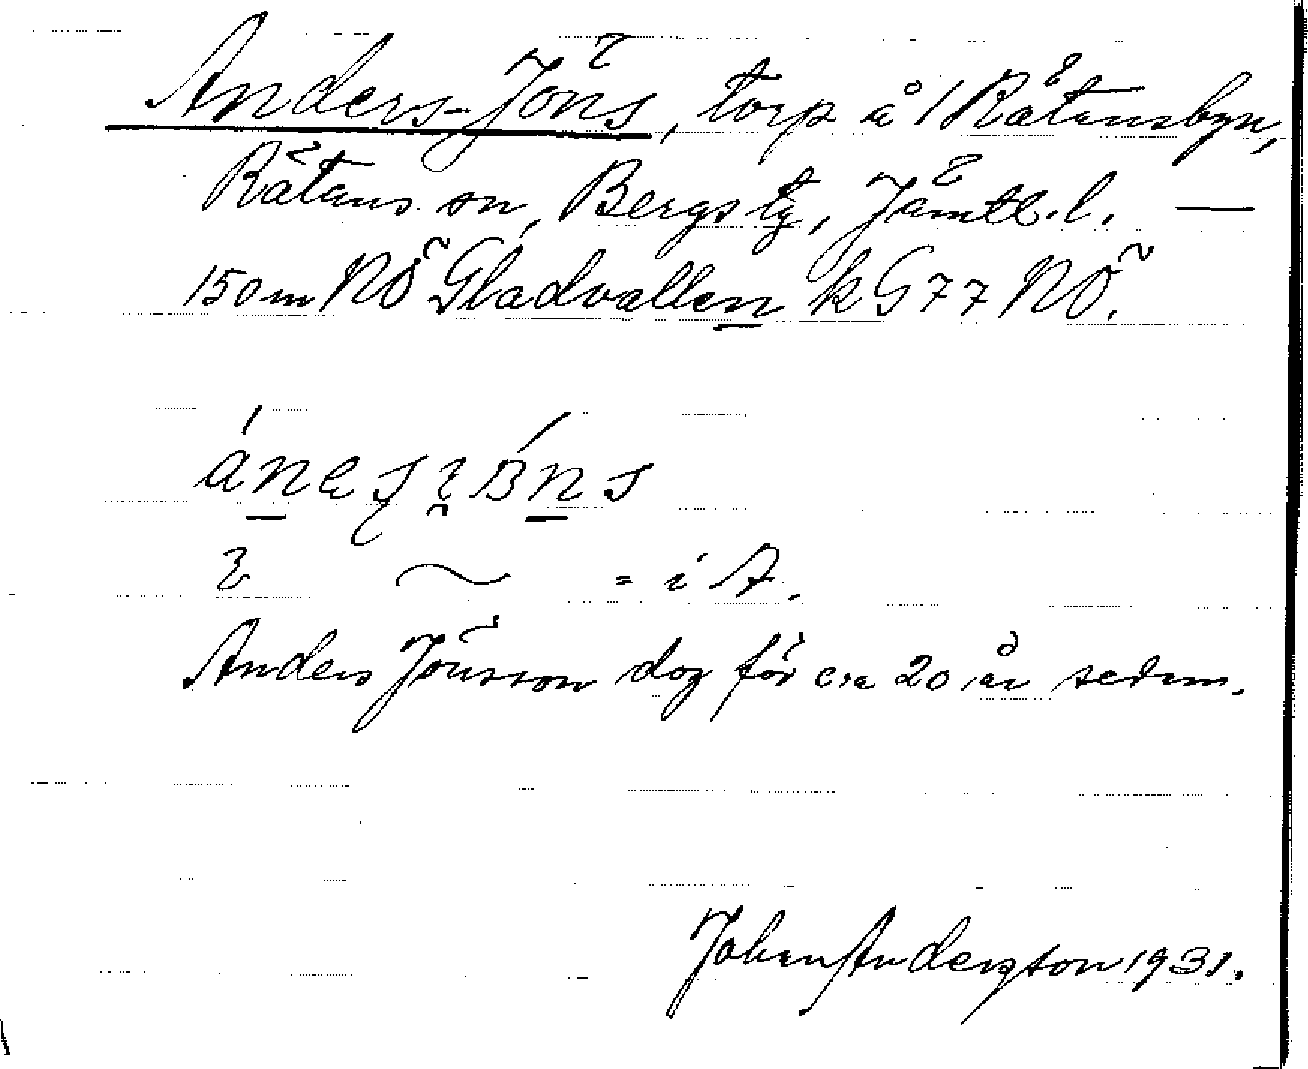 Anders-Jöns, torp å 1 Råtansbyn,
Råtans sn, Bergs tg, Jämtl. l. —
150 m NÖ Gladvallen k G 77 NÖ.
= i A.
Anders Jönsson dog för c:a 20 år sedan.
Johan Andersson 1931.